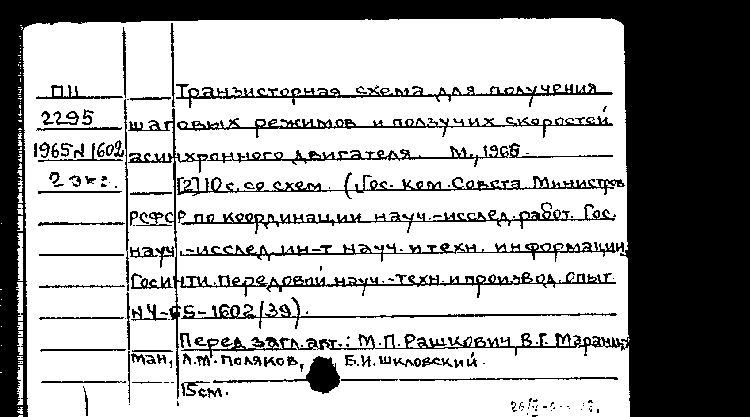 ПII Транзисторная схема для получения
2295 шаговых режимов и ползучих скоростей
1965 N 1602 асинхронного двигателя. М., 1965.
2 экз. [2] 10 с. со схем. (Гос. Ком. Совета Министров
РСФСР по координации науч.-исслед. работ. Гос.
науч.-исслед. ин-т науч. и техн. информации,
ГОСИНТИ. Передовой науч.-техн. и производ. опыт
N 4-65-1602/39).
Перед загл. авт.: М.П. Рашкович, В.Г. Маранц-
ман, Л.М. Поляков, Б.И. Шкловский.
15 см.